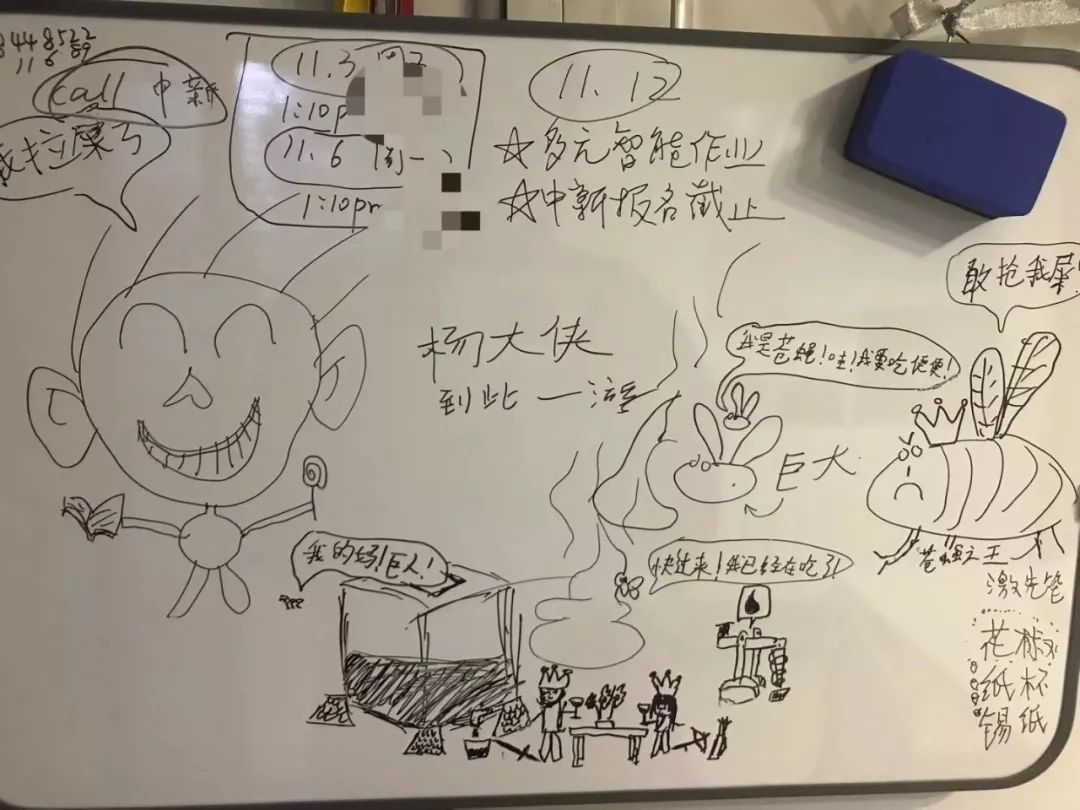 448522
11 6 89
call 中新
我拉粪了
11.3 周
1:10p
11.6 周一
1:10pm
11.12
☆多元智能作业
☆中新报名截止
敢抢我屎!
杨大侠
到此一游
我是苍蝇!哇!我要吃便便!
巨大
苍蝇之王
我的妈!巨人!
快过来!我已经在吃了!
激光笔
花椒水
纸杯
锡纸